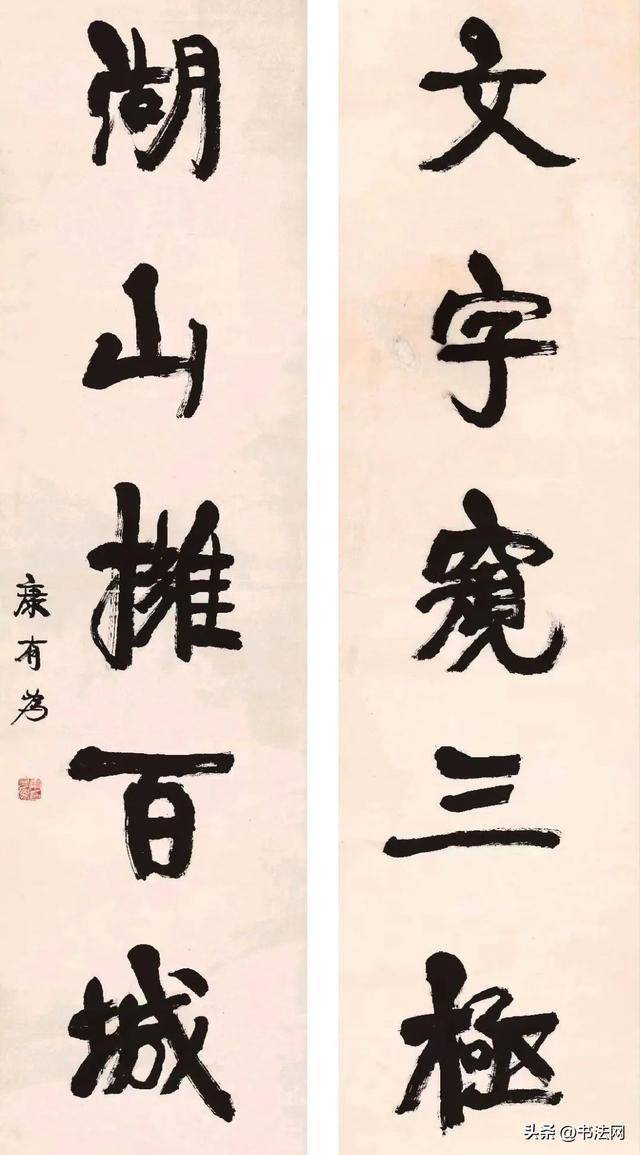 文字窺三極
湖山擁百城
康有為
头条@书法网